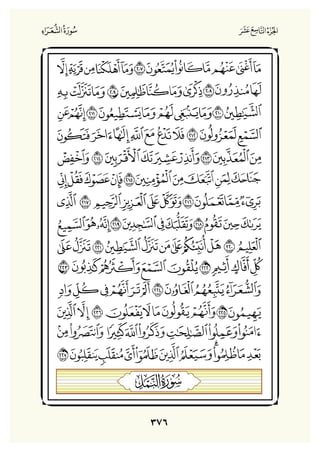 الجزء التاسع عشر
سورة الشعراء
مَا أَغْنَىٰ عَنْهُم مَّا كَانُوا يُمَتَّعُونَ ٢٠٧ وَمَا أَهْلَكْنَا مِن قَرْيَةٍ إِلَّا
لَهَا مُنذِرُونَ ٢٠٨ ذِكْرَىٰ وَمَا كُنَّا ظَالِمِينَ ٢٠٩ وَمَا تَنَزَّلَتْ بِهِ
الشَّيَاطِينُ ٢١٠ وَمَا يَنبَغِي لَهُمْ وَمَا يَسْتَطِيعُونَ ٢١١ إِنَّهُمْ عَنِ
السَّمْعِ لَمَعْزُولُونَ ٢١٢ فَلَا تَدْعُ مَعَ اللَّهِ إِلَٰهًا آخَرَ فَتَكُونَ
مِنَ الْمُعَذَّبِينَ ٢١٣ وَأَنذِرْ عَشِيرَتَكَ الْأَقْرَبِينَ ٢١٤ وَاخْفِضْ
جَنَاحَكَ لِمَنِ اتَّبَعَكَ مِنَ الْمُؤْمِنِينَ ٢١٥ فَإِنْ عَصَوْكَ فَقُلْ إِنِّي
بَرِيءٌ مِّمَّا تَعْمَلُونَ ٢١٦ وَتَوَكَّلْ عَلَى الْعَزِيزِ الرَّحِيمِ ٢١٧ الَّذِي
يَرَاكَ حِينَ تَقُومُ ٢١٨ وَتَقَلُّبَكَ فِي السَّاجِدِينَ ٢١٩ إِنَّهُ هُوَ السَّمِيعُ
الْعَلِيمُ ٢٢٠ هَلْ أُنَبِّئُكُمْ عَلَىٰ مَن تَنَزَّلُ الشَّيَاطِينُ ٢٢١ تَنَزَّلُ عَلَىٰ
كُلِّ أَفَّاكٍ أَثِيمٍ ٢٢٢ يُلْقُونَ السَّمْعَ وَأَكْثَرُهُمْ كَاذِبُونَ ٢٢٣
وَالشُّعَرَاءُ يَتَّبِعُهُمُ الْغَاوُونَ ٢٢٤ أَلَمْ تَرَ أَنَّهُمْ فِي كُلِّ وَادٍ
يَهِيمُونَ ٢٢٥ وَأَنَّهُمْ يَقُولُونَ مَا لَا يَفْعَلُونَ ٢٢٦ إِلَّا الَّذِينَ
آمَنُوا وَعَمِلُوا الصَّالِحَاتِ وَذَكَرُوا اللَّهَ كَثِيرًا وَانتَصَرُوا مِن
بَعْدِ مَا ظُلِمُوا وَسَيَعْلَمُ الَّذِينَ ظَلَمُوا أَيَّ مُنقَلَبٍ يَنقَلِبُونَ ٢٢٧
سورة النمل
٣٧٦